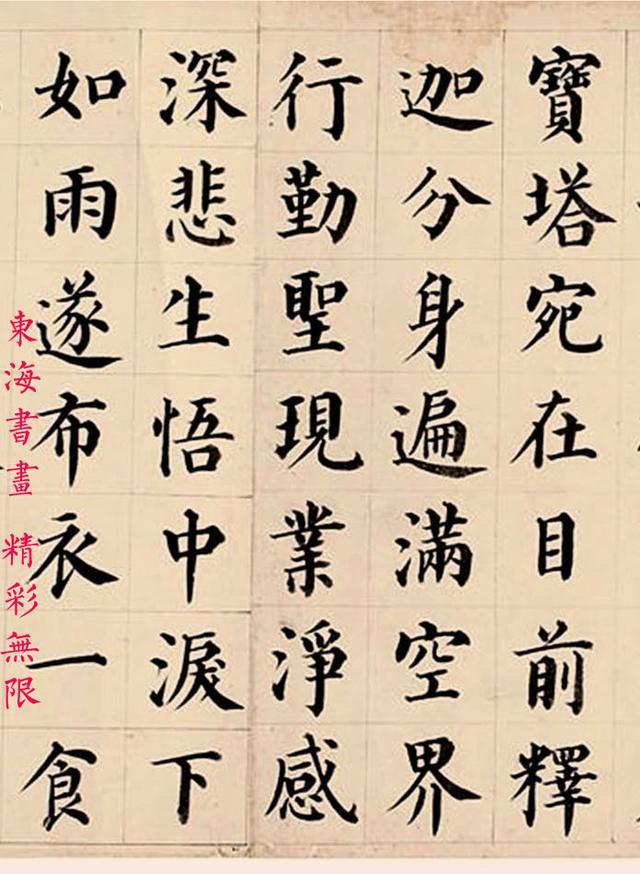 寶塔宛在目前釋
迦分身遍滿空界
行勤聖現業淨感
深悲生悟中淚下
如雨遂布衣一食
東海書畫 精彩無限